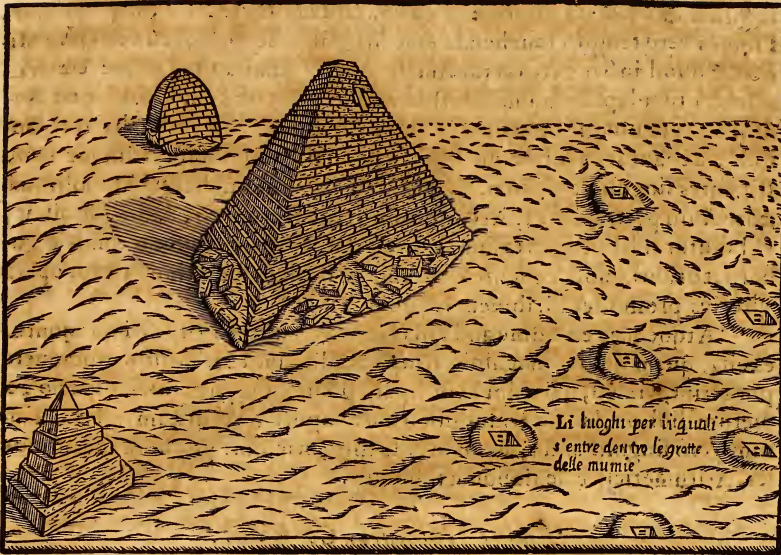 Li luoghi per li quali
s'entre dentro le grotte
delle mumie